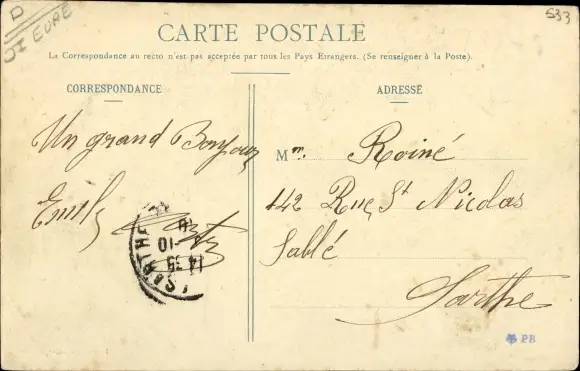 D
EURE
533
CARTE POSTALE
La Correspondance au recto n'est pas acceptée par tous les Pays Etrangers. (Se renseigner à la Poste).
CORRESPONDANCE
ADRESSE
Un grand Bonjour
Emile
M. Roiné
142 Rue St Nicolas
Sablé
Sarthe
14 35
-10
SARTHE
PB